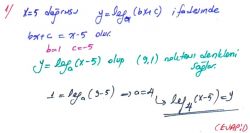 1/ x=5 doğrusu y=log_a(bx+c) ifadesinde
bx+c = x-5 olur.
b=1 c=-5
y=log_a(x-5) olup (9,1) noktası denklemi
sağlar.
1=log_a(9-5) ⇒ a=4
log_4(x-5)=y
(CEVAP:D)